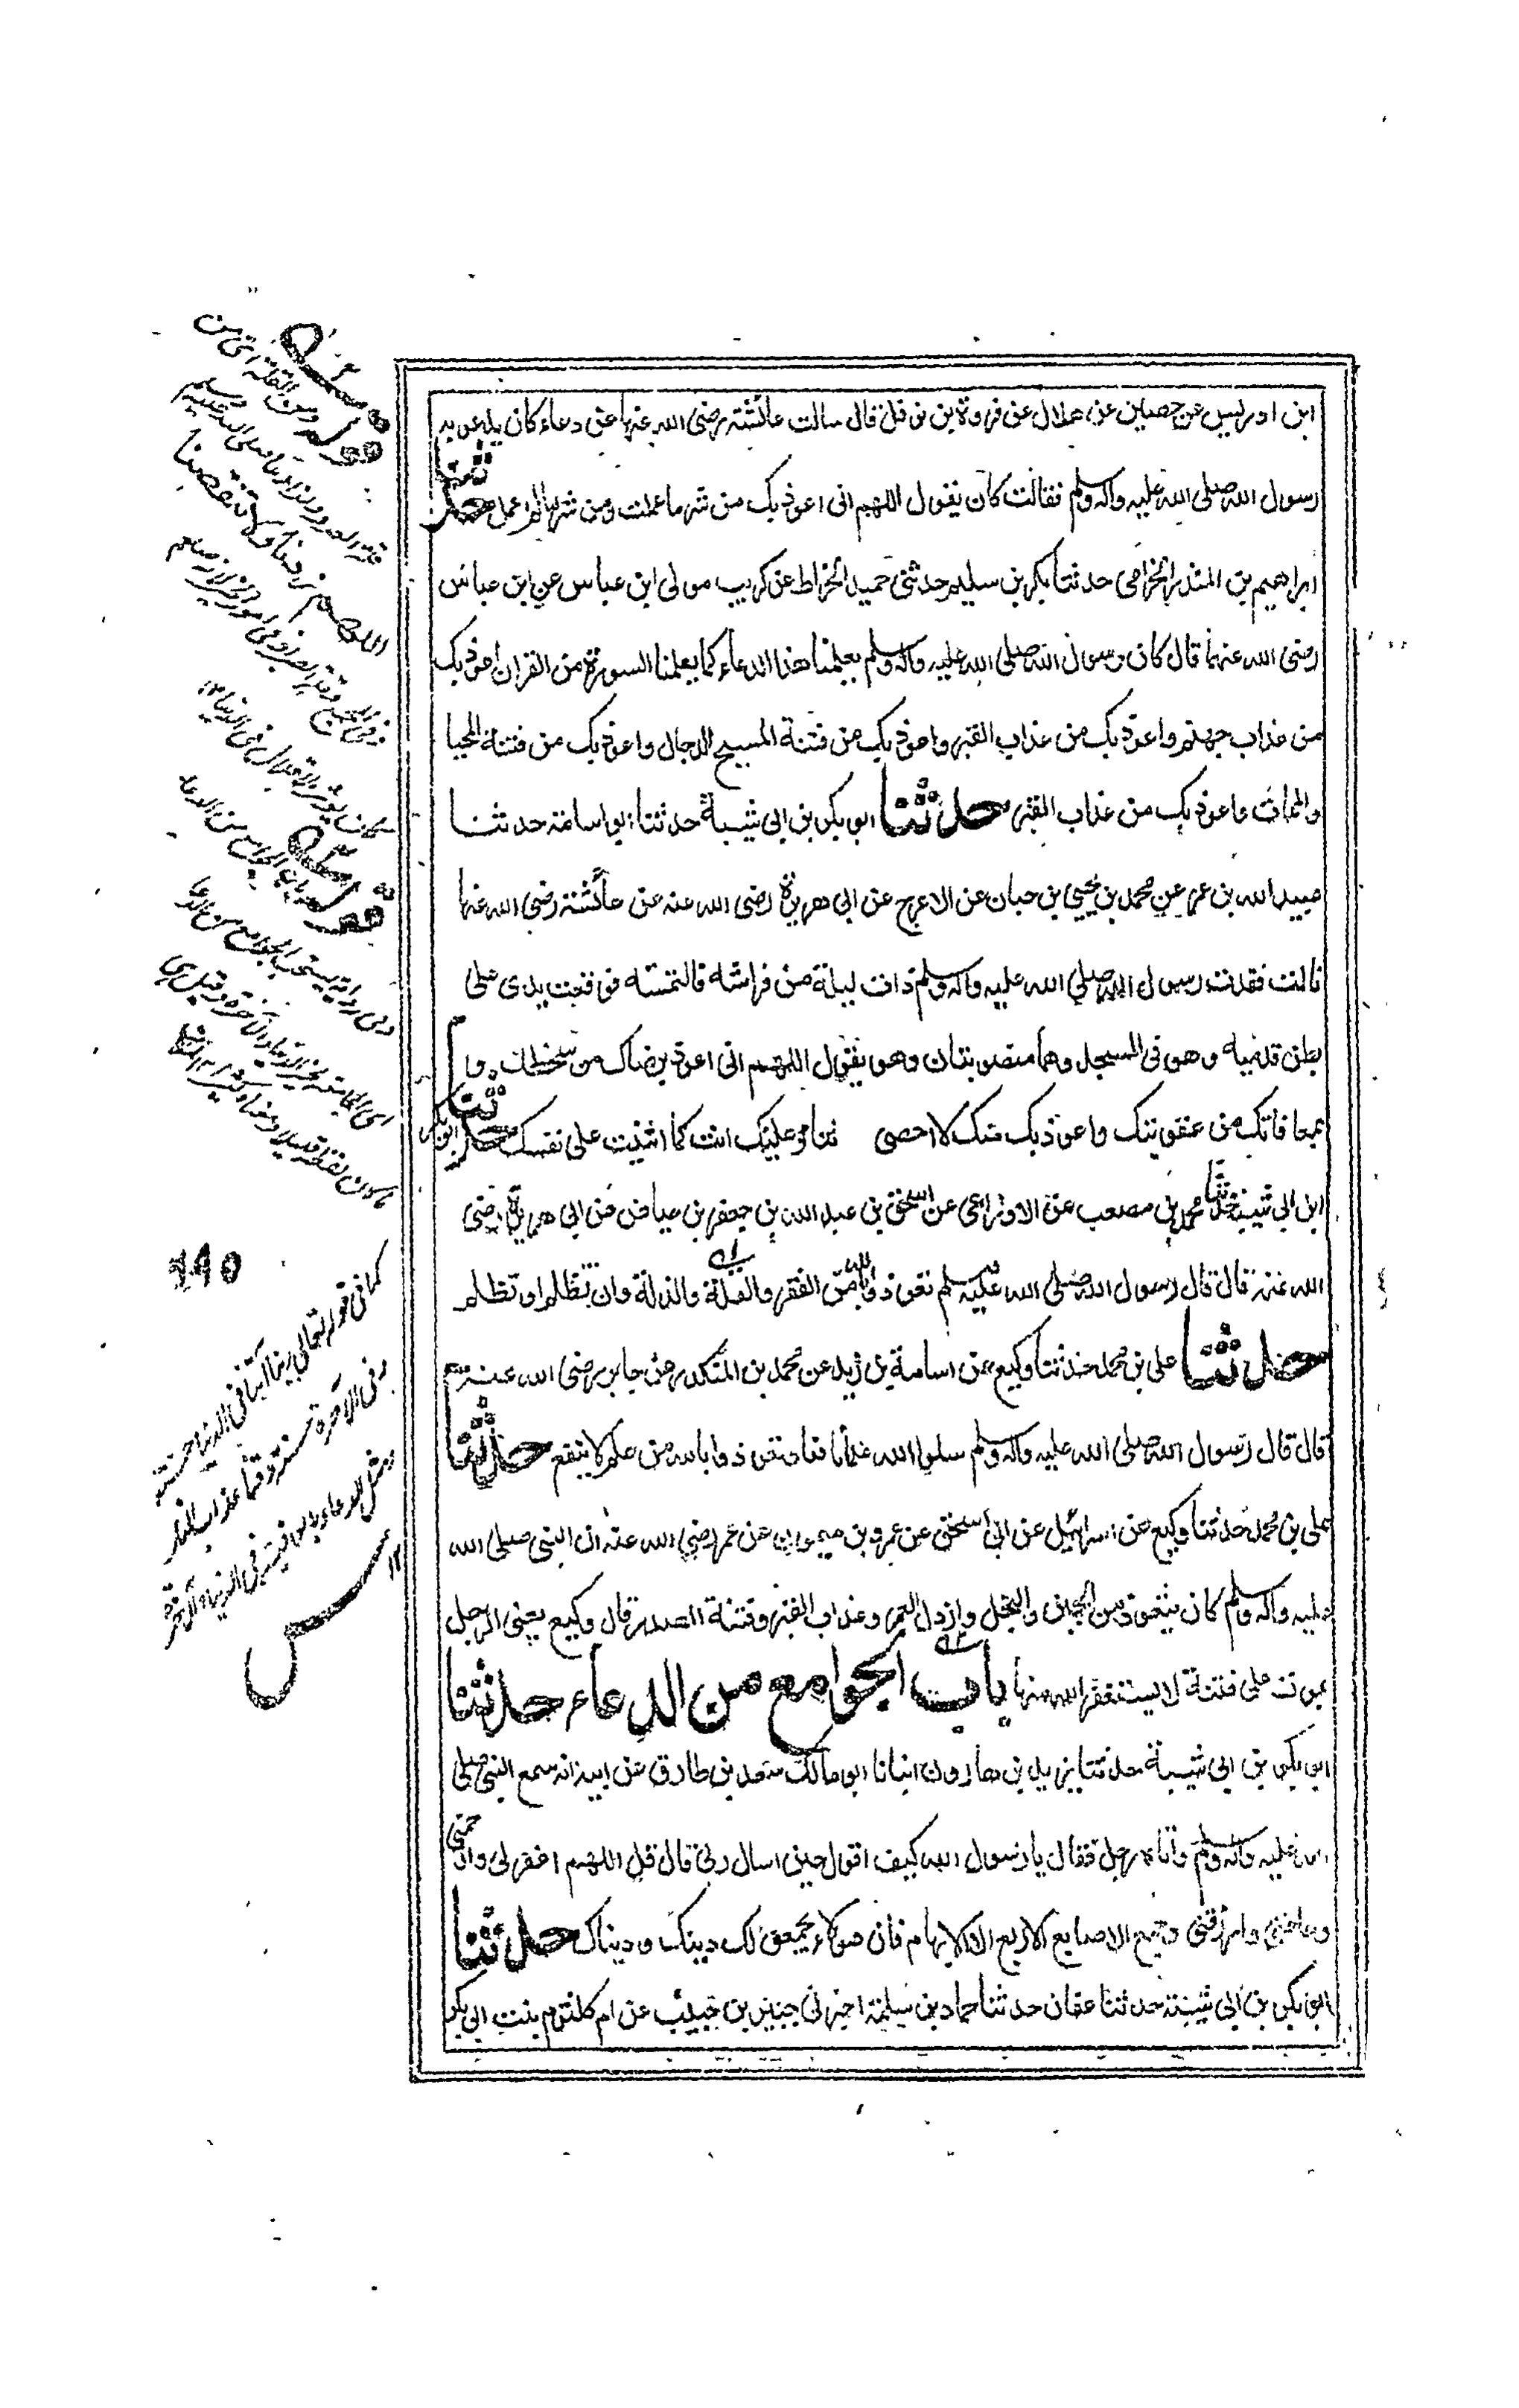 ابن ادريس عن حصين عن هلال عن فروة بن نوفل قال سالت عائشة رضى الله عنها عن دعاء كان يدعو به
رسول الله صلى الله عليه وآله وسلم فقالت كان يقول اللهم انى اعوذ بك من شر ما عملت ومن شر ما لم اعمل حدثنا
ابراهيم بن المنذر الخزامى حدثنا بكر بن سليم حدثنى حميد الخراط عن كريب مولى ابن عباس عن ابن عباس
رضى الله عنهما قال كان رسول الله صلى الله عليه وآله وسلم يعلمنا هذا الدعاء كما يعلمنا السورة من القران اعوذ بك
من عذاب جهنم واعوذ بك من عذاب القبر واعوذ بك من فتنة المسيح الدجال واعوذ بك من فتنة المحيا
والممات واعوذ بك من عذاب القبر حدثنا ابو بكر بن ابى شيبة حدثنا ابو اسامة حدثنا
عبيد الله بن عمر عن محمد بن يحيى بن حبان عن الاعرج عن ابى هريرة رضى الله عنه عن عائشة رضى الله عنها
قالت فقدت رسول الله صلى الله عليه وآله وسلم ذات ليلة من فراشه فالتمسته فوقعت يدى على
بطن قدميه وهو فى المسجد وهما منصوبتان وهو يقول اللهم انى اعوذ برضاك من سخطك وا
بمعافاتك من عقوبتك واعوذ بك منك لا احصى ثناء عليك انت كما اثنيت على نفسك حدثنا ابو بكر
ابن ابى شيبة حدثنا محمد بن مصعب عن الاوزاعى عن اسحق بن عبد الله بن جعفر بن عياض عن ابى هريرة رضى
الله عنه قال قال رسول الله صلى الله عليه وسلم تعوذوا بالله من الفقر والقلة والذلة وان تظلم او تظلم
حدثنا على بن محمد حدثنا وكيع عن اسامة بن زيد عن محمد بن المنكدر عن جابر رضى الله عنه
قال قال رسول الله صلى الله عليه وآله وسلم سلوا الله علما نافعا وتعوذوا بالله من علم لا ينفع حدثنا
على بن محمد حدثنا وكيع عن اسرائيل عن ابى اسحق عن عمرو بن ميمون عن عمر رضى الله عنه ان النبى صلى الله
عليه وآله وسلم كان يتعوذ من الجبن والبخل وارذل العمر وعذاب القبر وفتنة الصدر قال وكيع يعنى الرجل
يموت على فتنة لا يستغفر الله منها باب الجوامع من الدعاء حدثنا
ابو بكر بن ابى شيبة حدثنا يزيد بن هارون انبانا ابو مالك سعد بن طارق عن ابيه انه سمع النبى صلى
الله عليه وآله وسلم واتاه رجل فقال يا رسول الله كيف اقول حين اسال ربى قال قل اللهم اغفر لى وارحمنى
وعافنى وارزقنى وجمع الاصابع الاربع الا الابهام فان هؤلاء يجمعن لك دينك ودنياك حدثنا
ابو بكر بن ابى شيبة حدثنا عفان حدثنا حماد بن سلمة اخبرنى جبير بن حبيب عن ام كلثوم بنت ابى بكر
قوله ومن القلة اى من
اللهم زدنا ولا تنقصنا
قوله باب الجوامع من الدعاء
وفى رواية يستحب الجوامع من الدعا
١٩٥
كما فى قوله تعالى ربنا آتنا فى الدنيا حسنة
وفى الآخرة حسنة وقنا عذاب النار
ومثل الدعاء بالعافية فى الدنيا والآخرة
١٢